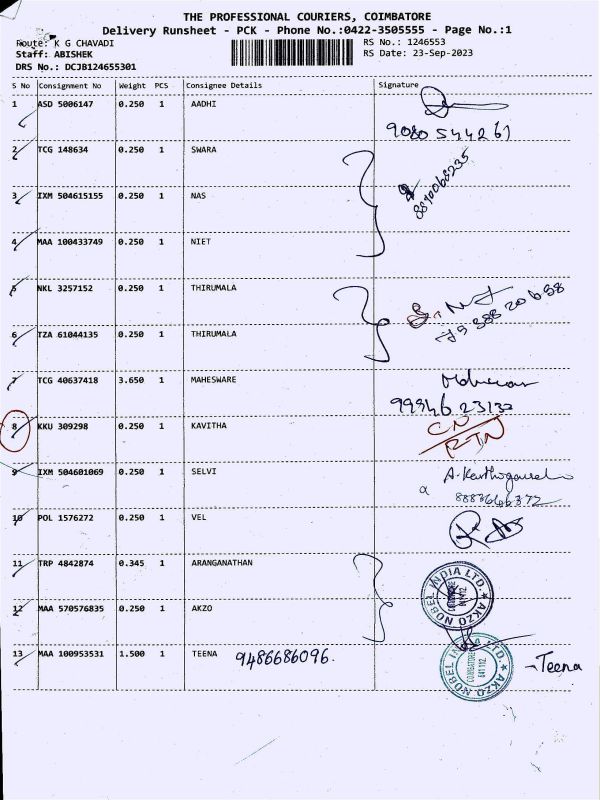 THE PROFESSIONAL COURIERS, COIMBATORE
Delivery Runsheet - PCK - Phone No.:0422-3505555 - Page No.:1
Route: K G CHAVADI
Staff: ABISHEK
DRS No.: DCJB124655301
RS No.: 1246553
RS Date: 23-Sep-2023
S No Consignment No Weight PCS Consignee Details Signature
1 ASD 5006147 0.250 1 AADHI
9080544261
2 TCG 148634 0.250 1 SWARA
3 IXM 504615155 0.250 1 NAS
4 MAA 100433749 0.250 1 NIET
5 NKL 3257152 0.250 1 THIRUMALA
6 TZA 61044135 0.250 1 THIRUMALA
7 TCG 40637418 3.650 1 MAHESWARE
8 KKU 309298 0.250 1 KAVITHA
CN
RTN
9 IXM 504601069 0.250 1 SELVI
10 POL 1576272 0.250 1 VEL
11 TRP 4842874 0.345 1 ARANGANATHAN
AKZO NOBEL INDIA LTD.
12 MAA 570576835 0.250 1 AKZO
13 MAA 100953531 1.500 1 TEENA 9486686096.
AKZO NOBEL INDIA LTD.
COIMBATORE
641 112
-Teena